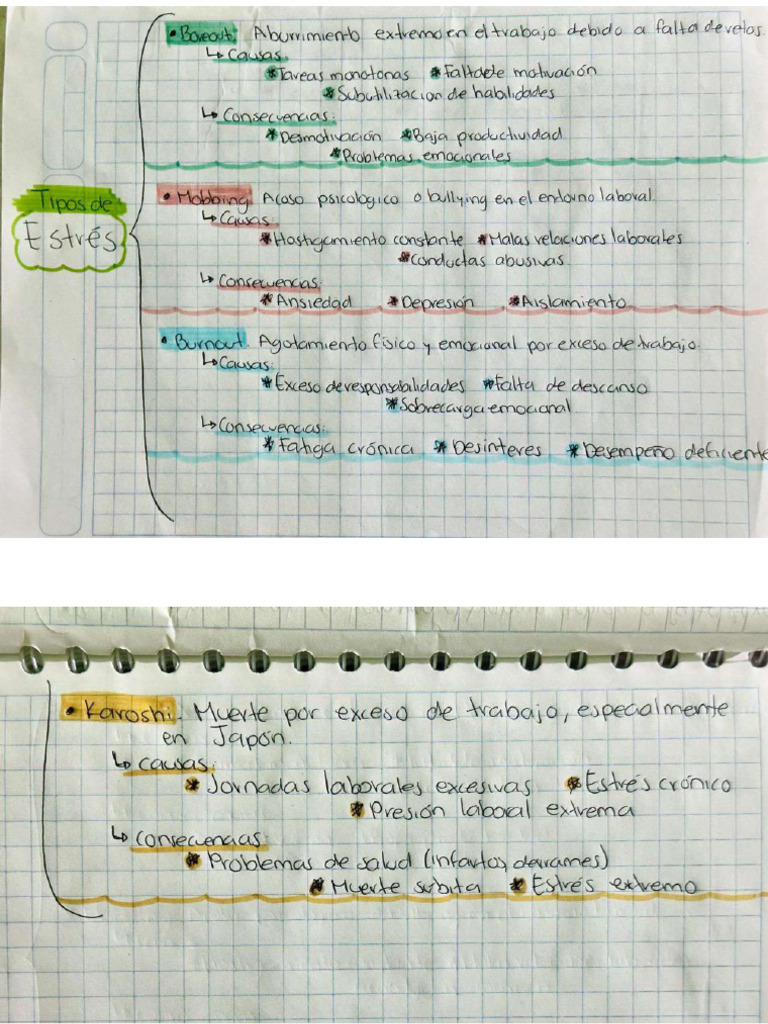 • Boreout: Aburrimiento extremo en el trabajo debido a falta de retos.
↳ Causas:
* Tareas monotonas * Falta de motivación
* Subutilización de habilidades
↳ Consecuencias:
* Desmotivación * Baja productividad
* Problemas emocionales
Tipos de
Estrés
• Mobbing. Acoso psicologico o bullying en el entorno laboral.
↳ Causas:
* Hostigamiento constante * Malas relaciones laborales
* Conductas abusivas
↳ Consecuencias:
* Ansiedad * Depresión * Aislamiento
• Burnout. Agotamiento físico y emocional por exceso de trabajo.
↳ Causas:
* Exceso de responsabilidades * Falta de descanso
* Sobrecarga emocional
↳ Consecuencias:
* Fatiga crónica * Desinteres * Desempeño deficiente
• Karoshi. Muerte por exceso de trabajo, especialmente
en Japón.
↳ Causas:
* Jornadas laborales excesivas * Estrés crónico
* Presión laboral extrema
↳ Consecuencias:
* Problemas de salud (infartos, derrames)
* Muerte subita * Estrés extremo